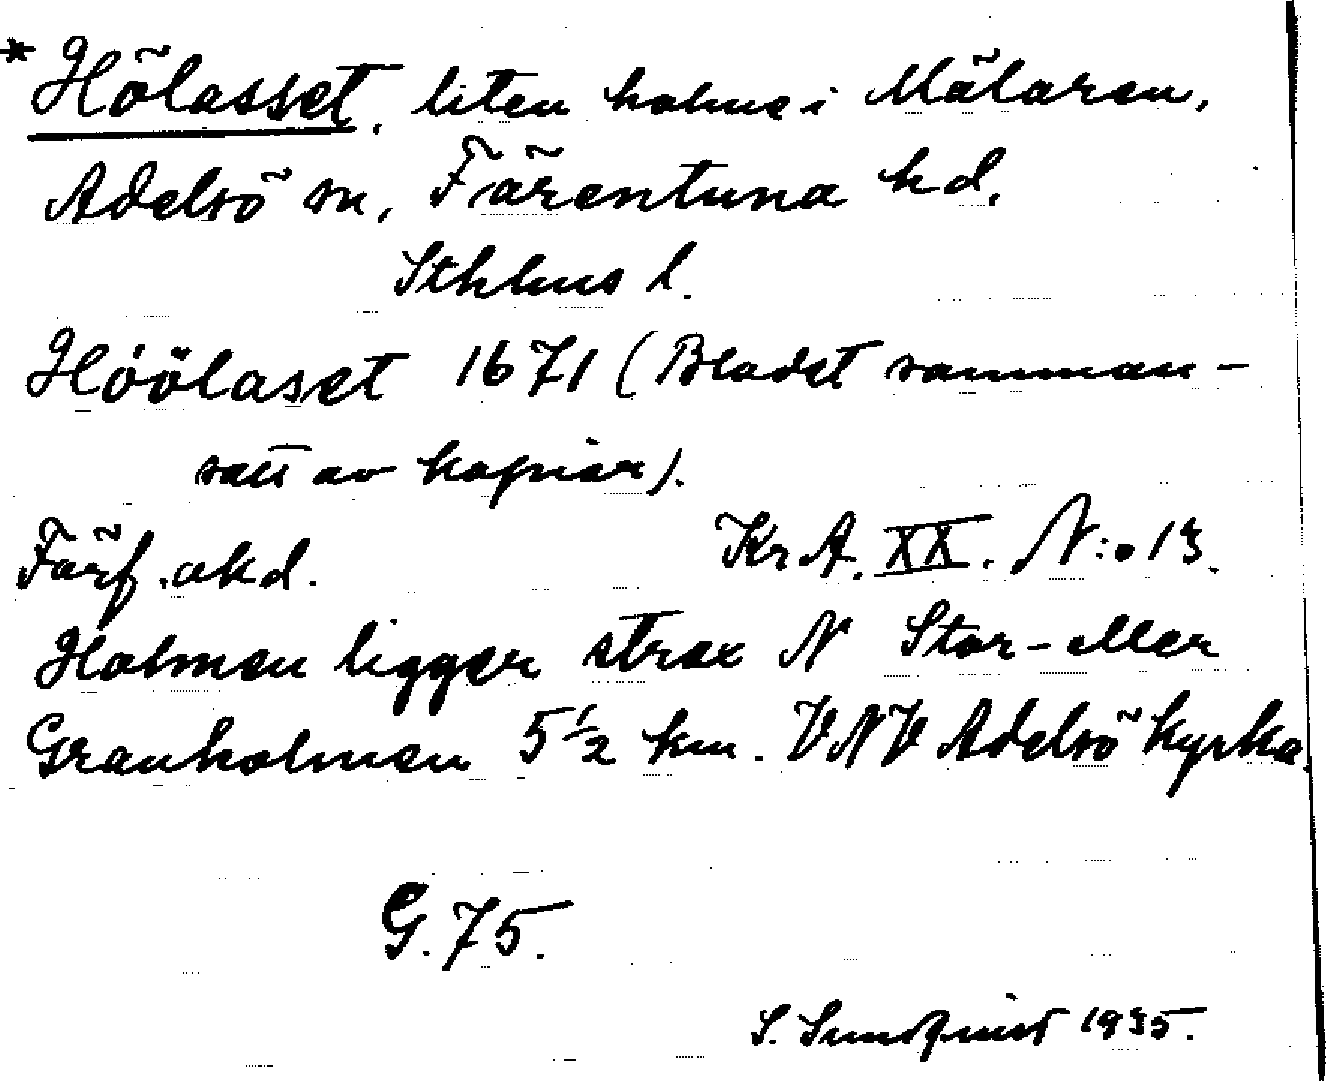 * Hölasset, liten holme i Mälaren,
Adelsö sn, Färentuna hd,
Sthlms l.
Hóölaset 1671 (Bladet samman-
satt av kopior).
Förf. okd. Kr A. XX. N:o 13.
Holmen ligger strax N Stor- eller
Granholmen 5 1/2 km. VNV Adelsö kyrka.
G. 75.
S. Sundqvist 1935.